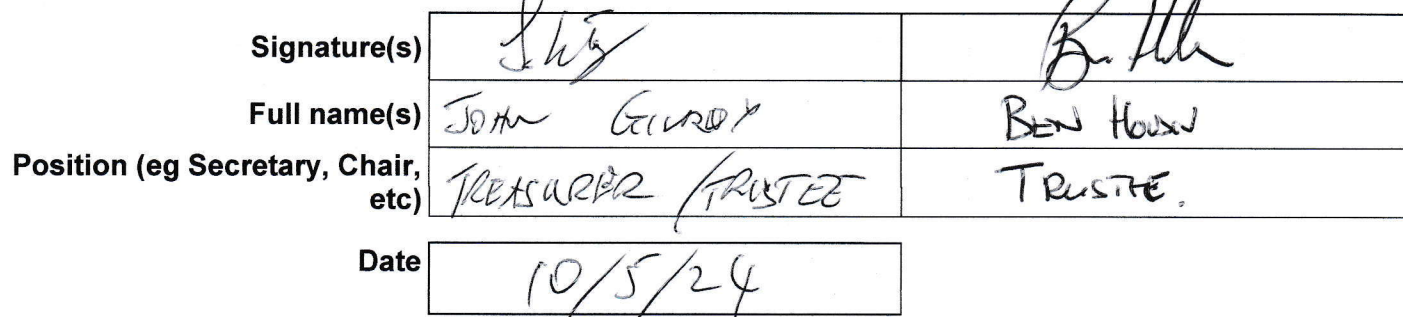 Signature(s)
Full name(s) JOHN GILROY BEN
Position (eg Secretary, Chair,
etc) TREASURER / TRUSTEE TRUSTEE.
Date 10/5/24